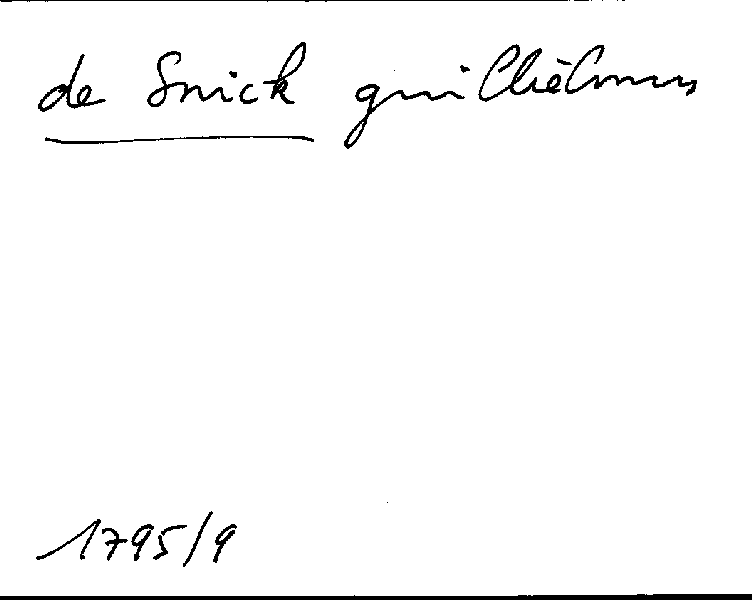 de Snick guilliélmus
1795/9